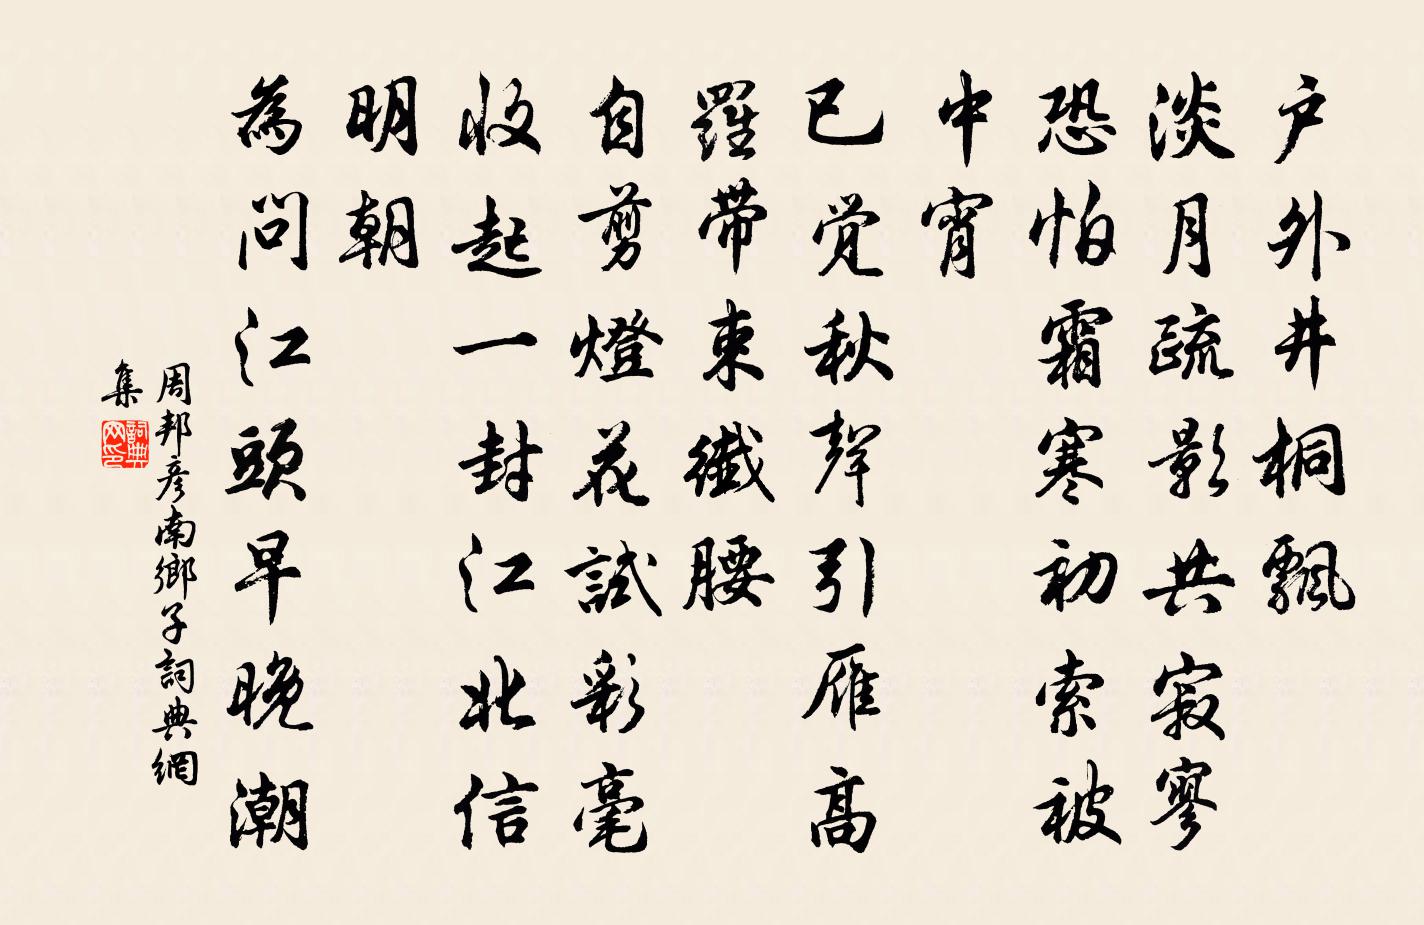 户外井桐飄
淡月疏影共寂寥
恐怕霜寒初索被
中宵
已觉秋聲引雁高
羅带束纖腰
自剪燈花試彩毫
收起一封江北信
明朝
為问江頭早晚潮
周邦彦南鄉子詞典網
集
詞典
网印